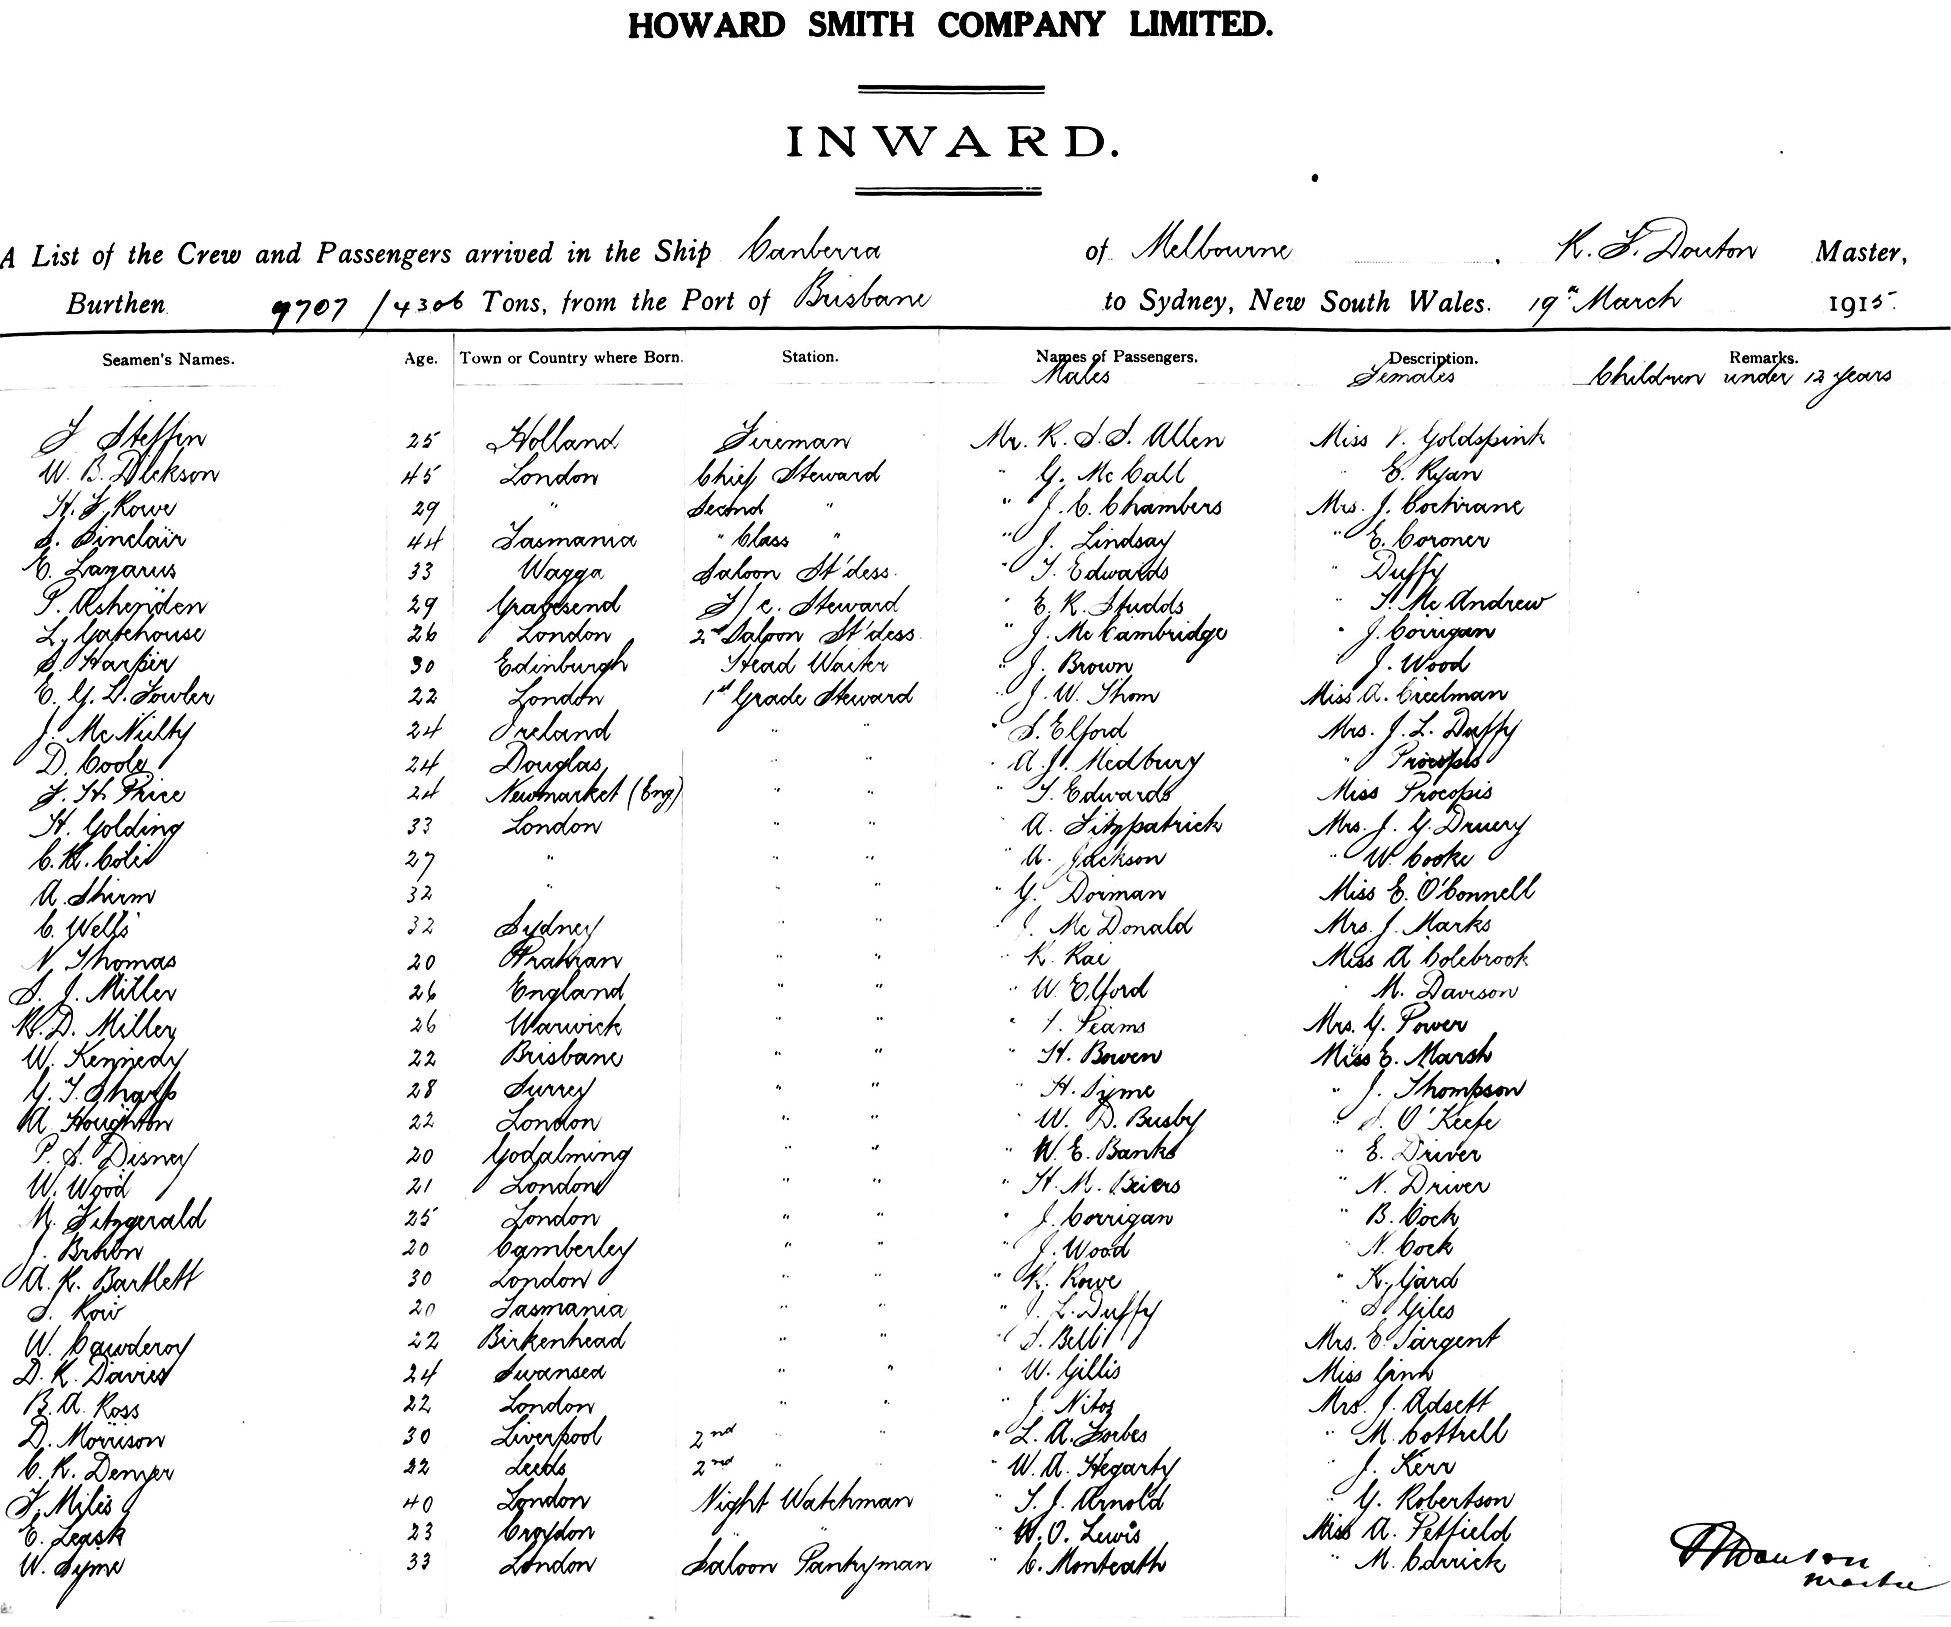 HOWARD SMITH COMPANY LIMITED.
INWARD.
A List of the Crew and Passengers arrived in the Ship Canberra of Melbourne . K. F. Douton Master,
Burthen 9707 / 4306 Tons, from the Port of Brisbane to Sydney, New South Wales. 19th March 1915.
Seamen's Names. Age. Town or Country where Born. Station. Names of Passengers. Description. Remarks.
Males Females Children under 12 years
Steffin 25 Holland Fireman Mr. R. S. S. Allen Miss V. Goldspink
W. B. Dickson 45 London Chief Steward " G. McCall " E. Ryan
H. F. Rowe 29 " Second " " J. C. Chambers Mrs. J. Cochrane
S. Sinclair 44 Tasmania " Class " " J. Lindsay " E. Coroner
E. Lazarus 33 Wagga Saloon St'dess. " T. Edwards " Duffy
P. Ashenden 29 Gravesend J/c. Steward " E. R. Studds " S. McAndrew
L. Gatehouse 26 London 2nd Saloon St'dess. " J. McCambridge " J. Corrigan
S. Harper 30 Edinburgh Head Waiter " J. Brown J. Wood
C. G. D. Fowler 22 London 1st Grade Steward " J. W. Thom Miss A. Creelman
J. McNulty 24 Ireland " " " S. Elford Mrs. J. L. Duffy
D. Coole 24 Douglas " " " A. J. Medbury " Procopis
F. H. Price 24 Newmarket (Eng) " " " T. Edwards Miss Procopis
H. Golding 33 London " " " A. Fitzpatrick Mrs. J. G. Druery
27 " " " " A. Jackson " W. Cooke
A. Shirm 32 " " " " G. Dorman Miss E. O'Connell
C. Wells 32 Sydney " " " J. McDonald Mrs. J. Marks
N Thomas 20 Prahran " " " R. Rae Miss A Colebrook
S. J. Miller 26 England " " " W. Elford " M. Davison
R. D. Miller 26 Warwick " " " Mrs. G. Power
W. Kennedy 22 Brisbane " " " H. Bowen Miss E. Marsh
G. T. Sharp 28 Surrey " " " H. Syme " J. Thompson
A Houghton 22 London " " " W. D. Busby " S. O'Keefe
P. S. Disney 20 Godalming " " " W. E. Banks " E. Driver
W. Wood 21 London " " " H. M. Beiers " N. Driver
M. Fitzgerald 25 London " " " J. Corrigan " B. Cock
J. Brown 20 Camberley " " " J. Wood " N. Cock
A. R. Bartlett 30 London " " " R. Rowe " K. Gard
S. 20 Tasmania " " " J. L. Duffy " S Giles
W. Cawderoy 22 Birkenhead " " " Mrs. E. Sargent
D. R. Davies 24 Swansea " " " W. Gillis Miss Ginn
B. A. Ross 22 London " " " J. Nitoz Mrs. J. Adsett
D. Morrison 30 Liverpool 2nd " " " L. A. Forbes " M. Cottrell
C. R. Denyer 22 Leeds 2nd " " " W. A. Hegarty " J. Kerr
F. Miles 40 London Night Watchman " S. J. Arnold " G. Robertson
E. Leask 23 Croydon " " " W. O. Lewis Miss A. Petfield
W. Syme 33 London Saloon Pantryman " C. Monteath " M. Carrick
Douton
Master